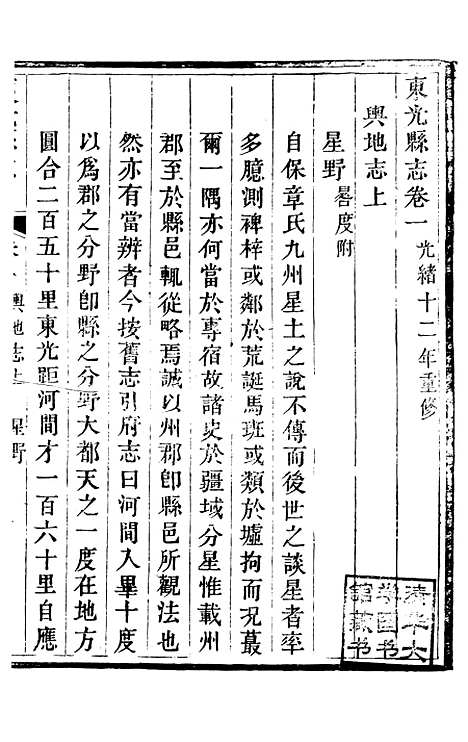 東光縣志卷一 光緒十二年重修
輿地志上
星野 晷度附
自保章氏九州星土之說不傳而後世之談星者率
多臆測裨梓或鄰於荒誕馬班或類於墟拘而況蕞
爾一隅亦何當於專宿故諸史於疆域分星惟載州
郡至於縣邑輒從略焉誠以州郡卽縣邑所觀法也
然亦有當辨者今按舊志引府志曰河間入畢十度
以爲郡之分野卽縣之分野大都天之一度在地方
圓合二百五十里東光距河間才一百六十里自應
輿地志上 星野
清华大
学图书
馆藏书